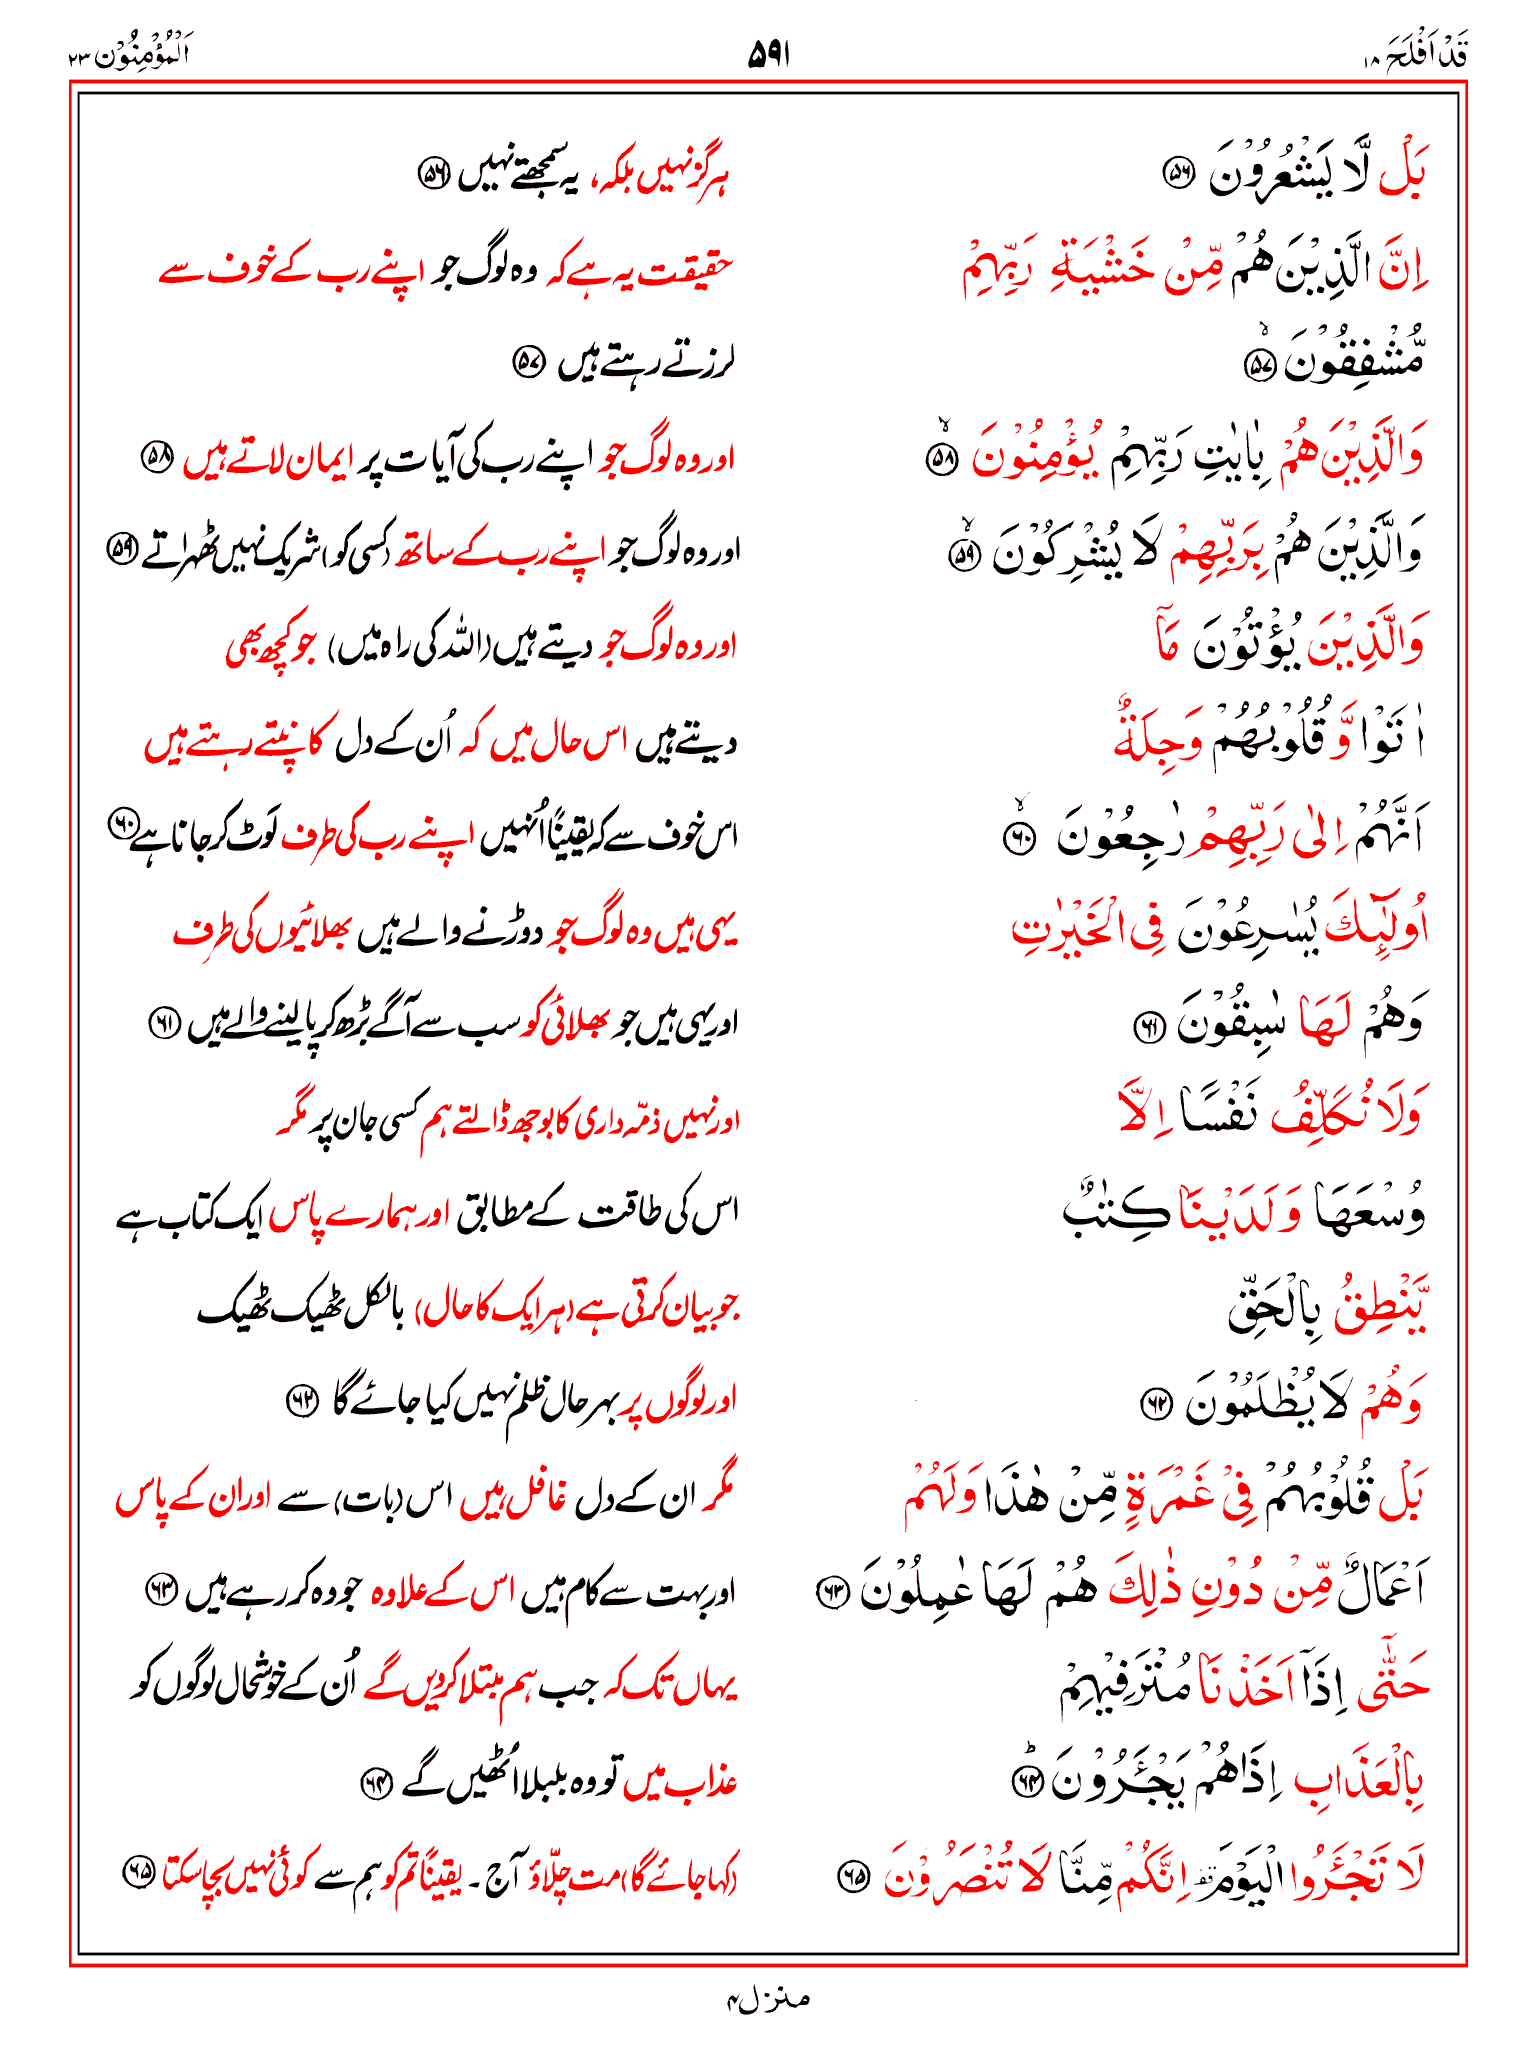 قَدْ اَفْلَحَ ۱۸ ۵۹۱ اَلْمُؤْمِنُوْن ۲۳
بَلْ لَّا یَشْعُرُوْنَ ﴿۵۶﴾ ہرگز نہیں بلکہ، یہ سمجھتے نہیں ﴿۵۶﴾
اِنَّ الَّذِیْنَ هُمْ مِّنْ خَشْیَةِ رَبِّهِمْ حقیقت یہ ہے کہ وہ لوگ جو اپنے رب کے خوف سے
مُّشْفِقُوْنَ ﴿۵۷﴾ۙ لرزتے رہتے ہیں ﴿۵۷﴾
وَالَّذِیْنَ هُمْ بِاٰیٰتِ رَبِّهِمْ یُؤْمِنُوْنَ ﴿۵۸﴾ۙ اور وہ لوگ جو اپنے رب کی آیات پر ایمان لاتے ہیں ﴿۵۸﴾
وَالَّذِیْنَ هُمْ بِرَبِّهِمْ لَا یُشْرِكُوْنَ ﴿۵۹﴾ۙ اور وہ لوگ جو اپنے رب کے ساتھ (کسی کو) شریک نہیں ٹھہراتے ﴿۵۹﴾
وَالَّذِیْنَ یُؤْتُوْنَ مَاۤ اور وہ لوگ جو دیتے ہیں (اللہ کی راہ میں) جو کچھ بھی
اٰتَوْا وَّ قُلُوْبُهُمْ وَجِلَةٌ دیتے ہیں اس حال میں کہ اُن کے دل کانپتے رہتے ہیں
اَنَّهُمْ اِلٰى رَبِّهِمْ رٰجِعُوْنَ ﴿۶۰﴾ۙ اس خوف سے کہ یقیناً اُنہیں اپنے رب کی طرف لَوٹ کر جانا ہے ﴿۶۰﴾
اُولٰٓئِكَ یُسٰرِعُوْنَ فِی الْخَیْرٰتِ یہی ہیں وہ لوگ جو دوڑنے والے ہیں بھلائیوں کی طرف
وَهُمْ لَهَا سٰبِقُوْنَ ﴿۶۱﴾ اور یہی ہیں جو بھلائی کو سب سے آگے بڑھ کر پا لینے والے ہیں ﴿۶۱﴾
وَلَا نُكَلِّفُ نَفْسًا اِلَّا اور نہیں ذمّہ داری کا بوجھ ڈالتے ہم کسی جان پر مگر
وُسْعَهَا وَلَدَیْنَا كِتٰبٌ اس کی طاقت کے مطابق اور ہمارے پاس ایک کتاب ہے
یَّنْطِقُ بِالْحَقِّ جو بیان کرتی ہے (ہر ایک کا حال) بالکل ٹھیک ٹھیک
وَهُمْ لَا یُظْلَمُوْنَ ﴿۶۲﴾ اور لوگوں پر بہرحال ظلم نہیں کیا جائے گا ﴿۶۲﴾
بَلْ قُلُوْبُهُمْ فِیْ غَمْرَةٍ مِّنْ هٰذَا وَلَهُمْ مگر ان کے دل غافل ہیں اس (بات) سے اور ان کے پاس
اَعْمَالٌ مِّنْ دُوْنِ ذٰلِكَ هُمْ لَهَا عٰمِلُوْنَ ﴿۶۳﴾ اور بہت سے کام ہیں اس کے علاوہ جو وہ کر رہے ہیں ﴿۶۳﴾
حَتّٰۤى اِذَاۤ اَخَذْنَا مُتْرَفِیْهِمْ یہاں تک کہ جب ہم مبتلا کردیں گے اُن کے خوشحال لوگوں کو
بِالْعَذَابِ اِذَا هُمْ یَجْـَٔرُوْنَ ﴿۶۴﴾ؕ عذاب میں تو وہ بلبلا اُٹھیں گے ﴿۶۴﴾
لَا تَجْـَٔرُوا الْیَوْمَ اِنَّكُمْ مِّنَّا لَا تُنْصَرُوْنَ ﴿۶۵﴾ (کہا جائے گا) مت چلّاؤ آج۔ یقیناً تم کو ہم سے کوئی نہیں بچا سکتا ﴿۶۵﴾
منزل ۴